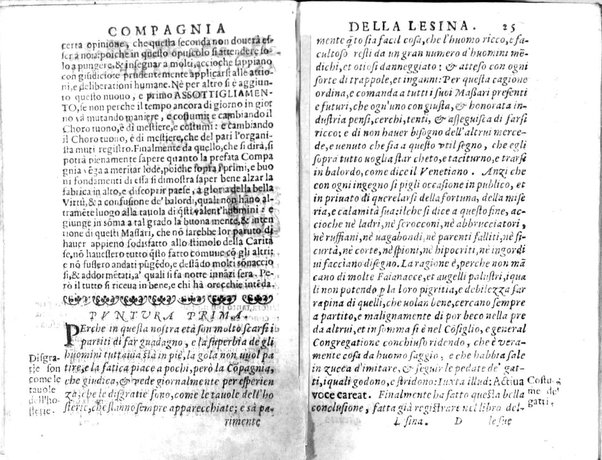 COMPAGNIA
certa opinione, che questa seconda non douerà es-
sa nota, poiche in questo opusculo si attendere so-
lo a pungere, & insegnar a molti, accioche sappiano
con giudicio e prudentemente applicarsi alle attio-
ni, e deliberationi humane. Nè per altro si è aggiun-
to questo nuouo, e primo ASSOTTIGLIAMEN-
TO, se non perche il tempo ancora di giorno in gior-
no và mutando maniere, e costumi: e cambiando il
Choro tuono, è di mestiere, che del pari l'organi-
sta muti registro. Finalmente da quello, che si dirà, si
potrà pienamente sapere quanto la prefata Compa-
gnia
fabrica in alto, e discoprir paese, a gloria della bella
Virtù, & a confusione de' balordi, quali non hanno al-
tramēte luogo alla tauola di questi valent'huomini: e
giunger in sōma a tal grado la buona mente, & inten-
tione di questi Massari, che nō sarebbe lor paruto di
hauer appieno sodisfatto allo stimolo della Carità
se, nō hauessero tutto ciò fatto commune cō gli altri:
e nō fussero andati piāgēdo, e destādo molti sonacchio
si, & addormētati, a' quali si fa notte innāzi sera. Pe-
rò il tutto si riceua in bene, e chi hà orecchie intēda.
PVNTVRA PRIMA.
Perche in questa nostra età son molto scarsi i
partiti di far guadagno, e la superbia de gli
huomini tuttauia stà in piè, la gola non vuol pa-
tire, e la fatica piace a pochi, però la Cōpagnia,
che giudica, & vede giornalmente per esperien-
za, che le disgratie son, come le tauole dell'ho-
sterie, che stanno sempre apparecchiate; e sà pa-
rimente
Disgra-
tie son
come le
tauole
dell'ho-
sterie.
DELLA LESINA. 25
mente q̃to sia facil cosa, che l'huomo ricco, e fa-
cultoso resti da un gran numero d'huomini me-
dichi, et otiosi danneggiato: & atteso con ogni
sorte di trappole, et inganni: Per questa cagione
ordina, e comanda a tutti i suoi Massari presenti
e futuri, che ogn'uno con giusta, & honorata in-
dustria pensi, cerchi, tenti, & asseguisca di farsi
ricco: e di non hauer bisogno dell'altrui merce-
de, e uenuto che sia a questo vtil segno, che egli
sopra tutto uoglia star cheto, e taciturno, e trarsi
in balordo, come dice il Venetiano. Anzi che
con ogni ingegno si pigli occasione in publico, et
in priuato di querelarsi della fortuna, della mise-
ria, e calamità sua: ilche si dice a questo fine, ac-
cioche nè ladri, nè scrocconi, nè abbrucciatori,
nè ruffiani, nè uagabondi, nè parenti falliti, nè si-
curtà, nè corte, nè spioni, nè hipocriti, ne ingordi
ui facciano disegno. La ragione è, perche non mā
cano di molte Faianacce, et augelli palustri, iqua
li non potendo p la lor pigritia, e debilezza far
rapina di quelli, che uolan bene, cercano sempre
a partito, e malignamente di por becco nella pre
da altrui, et in somma si è nel Cōsiglio, e general
Congregatione conchiuso ridendo, che è vera-
mente cosa da huomo saggio, e che habbia sale
in zucca d'imitare, & seguir le pedate de' ga-
tti, iquali godono, e stridono: Iuxta illud: Actiua
voce careat. Finalmente ha fatto questa bella
conclusione, fatta già registrare nel libro del-
Lesina. D le sue
Costu-
me de'
gatti.